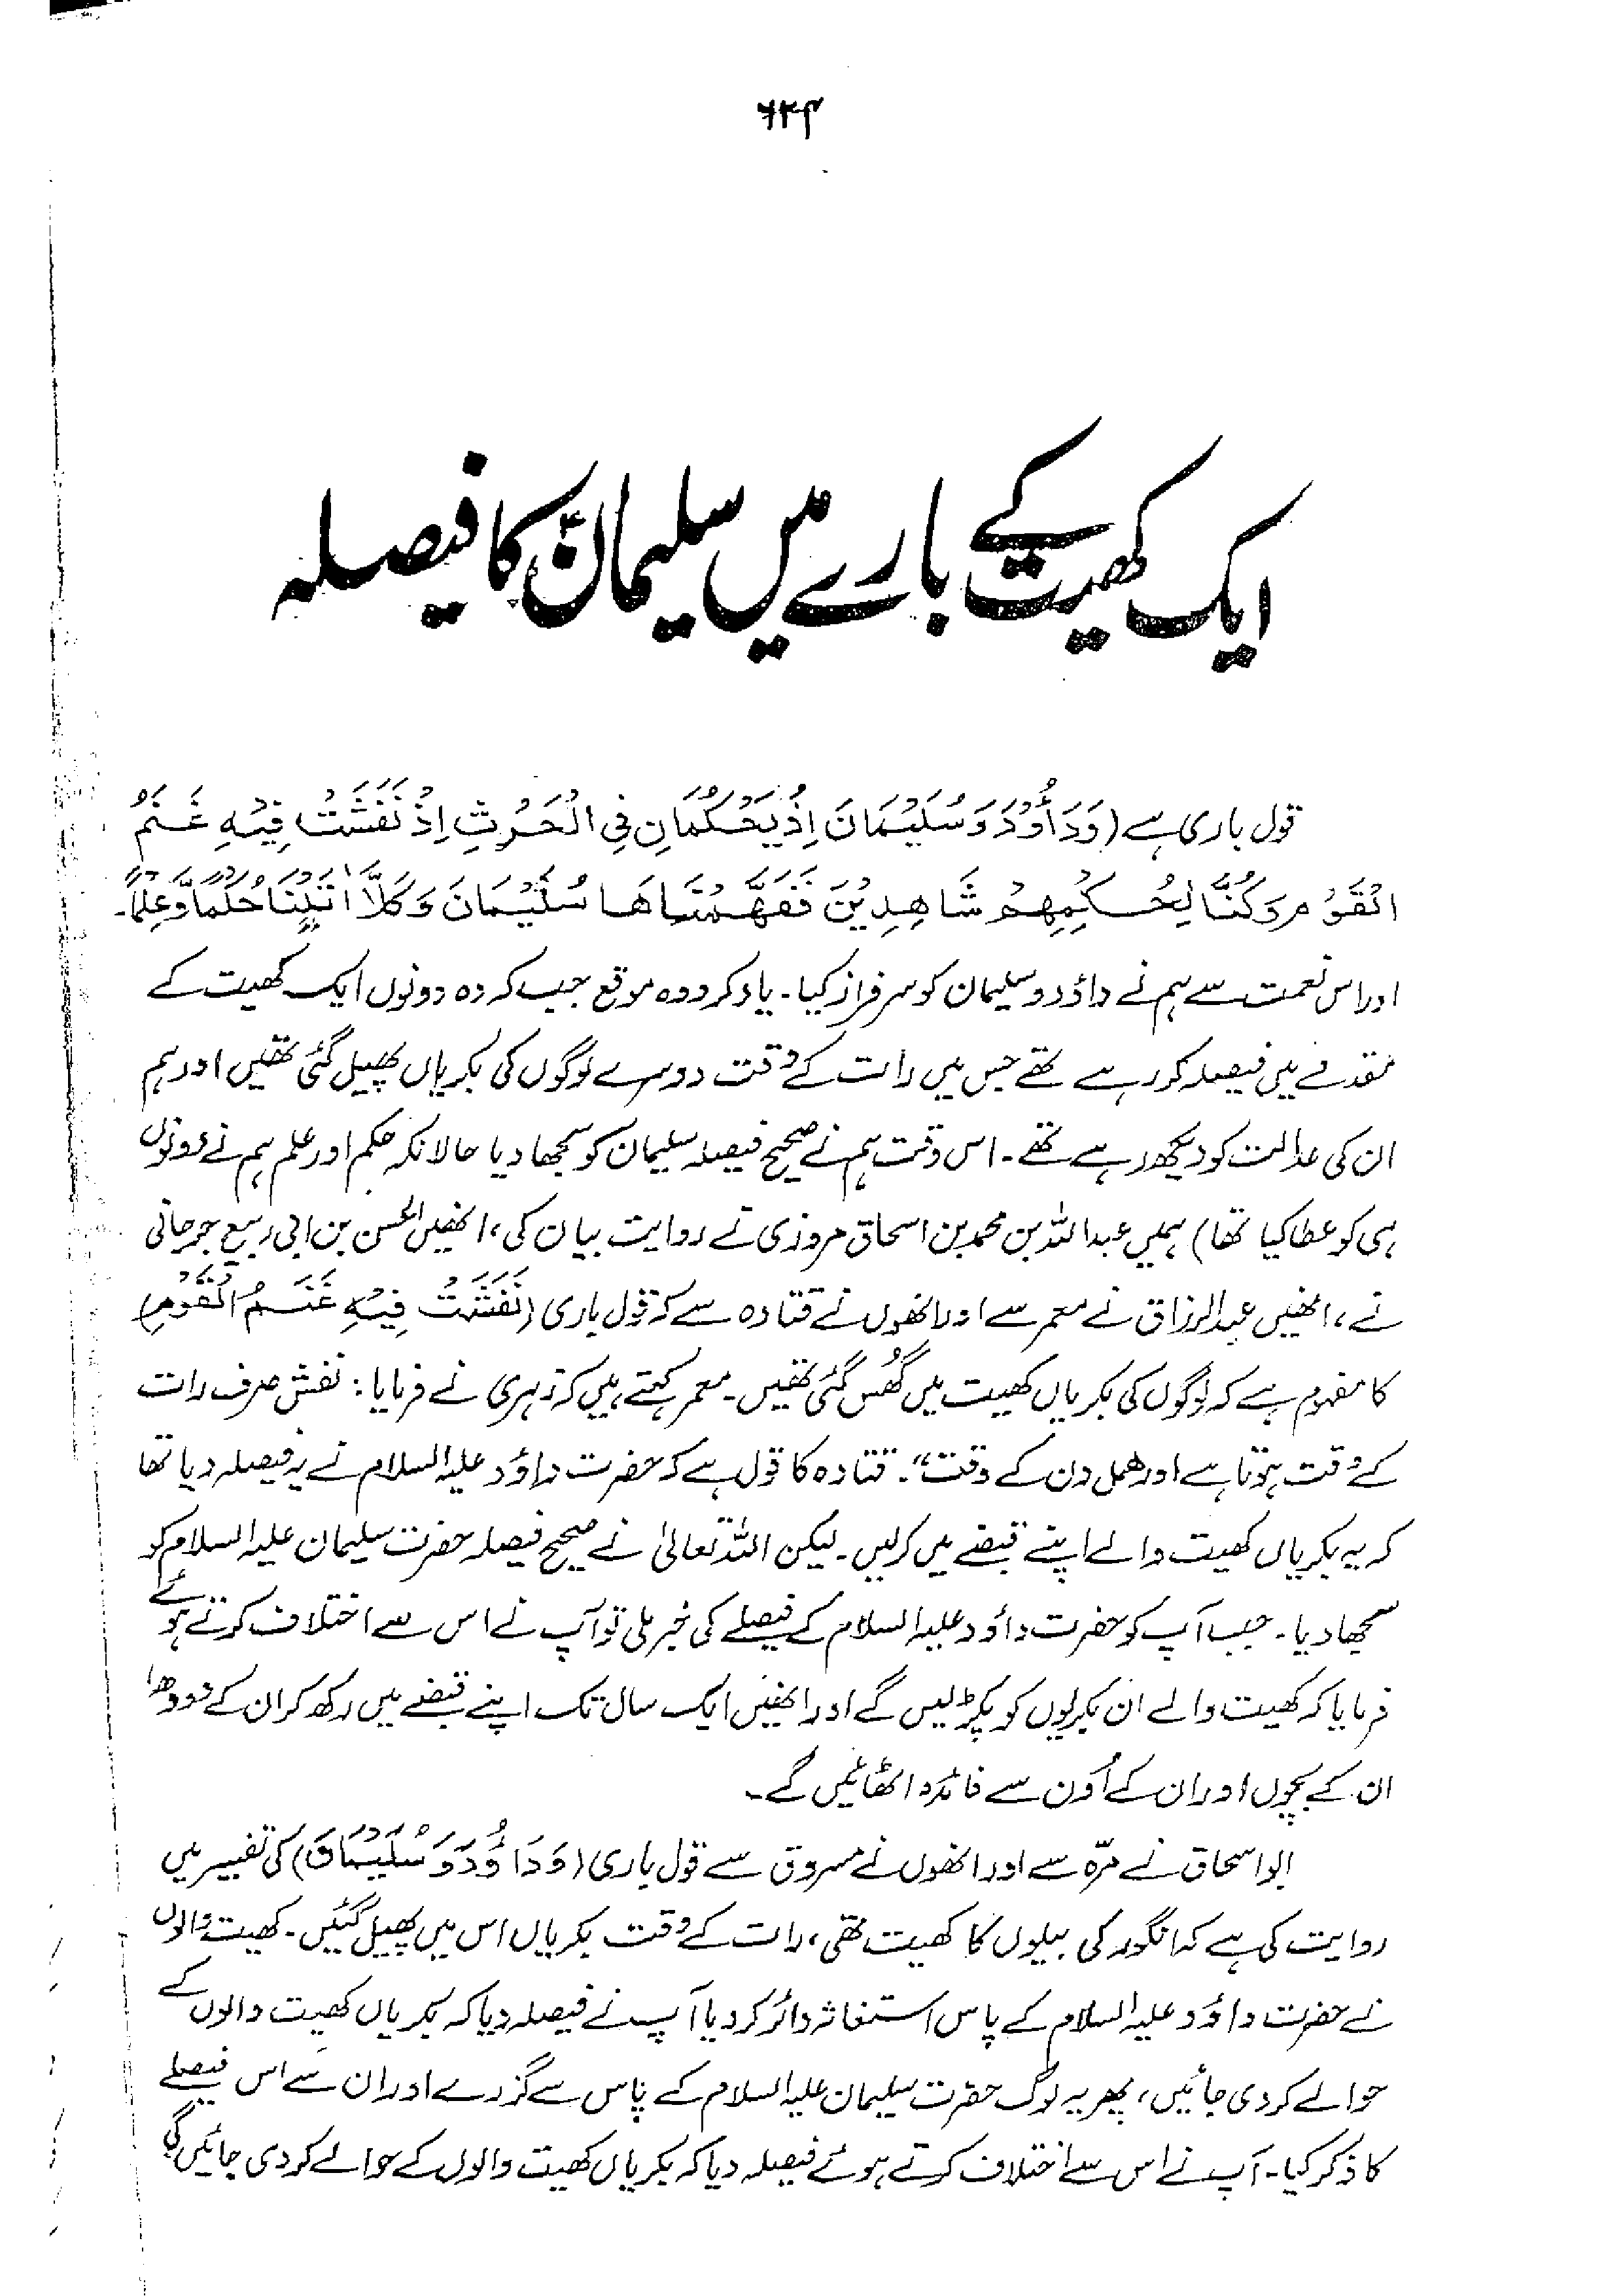 ۶۲۴
ایک کھیت کے بارے میں سلیمانؑ کا فیصلہ
قول باری ہے (وَدَاوُدَ وَسُلَيْمَانَ اِذْ يَحْكُمَانِ فِي الْحَرْثِ اِذْ نَفَشَتْ فِيْهِ غَنَمُ
الْقَوْمِ وَكُنَّا لِحُكْمِهِمْ شَاهِدِيْنَ فَفَهَّمْنَاهَا سُلَيْمَانَ وَكُلًّا اٰتَيْنَا حُكْمًا وَّعِلْمًا۔
اور اس نعمت سے ہم نے داؤد و سلیمان کو سرفراز کیا۔ یاد کرو وہ موقع جب کہ وہ دونوں ایک کھیت کے
مقدمے میں فیصلہ کر رہے تھے جس میں رات کے وقت دوسرے لوگوں کی بکریاں پھیل گئی تھیں اور ہم
ان کی عدالت کو دیکھ رہے تھے۔ اس وقت ہم نے صحیح فیصلہ سلیمان کو سمجھا دیا حالانکہ حکم اور علم ہم نے دونوں
ہی کو عطا کیا تھا) ہمیں عبداللہ بن محمد بن اسحاق مروزی نے روایت بیان کی، انھیں الحسن بن ابی ربیع جرجانی
نے، انھیں عبدالرزاق نے معمر سے اور انھوں نے قتادہ سے کہ قول باری (نَفَشَتْ فِيْهِ غَنَمُ الْقَوْمِ)
کا مفہوم ہے کہ لوگوں کی بکریاں کھیت میں گھُس گئی تھیں۔ معمر کہتے ہیں کہ زہری نے فرمایا: نفش صرف رات
کے وقت ہوتا ہے اور ھمل دن کے وقت“۔ قتادہ کا قول ہے کہ حضرت داؤد علیہ السلام نے یہ فیصلہ دیا تھا
کہ یہ بکریاں کھیت والے اپنے قبضے میں کرلیں۔ لیکن اللہ تعالیٰ نے صحیح فیصلہ حضرت سلیمان علیہ السلام کو
سمجھا دیا۔ جب آپ کو حضرت داؤد علیہ السلام کے فیصلے کی خبر ملی تو آپ نے اس سے اختلاف کرتے ہوئے
فرمایا کہ کھیت والے ان بکریوں کو پکڑ لیں گے اور انھیں ایک سال تک اپنے قبضے میں رکھ کر ان کے دودھ،
ان کے بچوں اور ان کے اُون سے فائدہ اٹھائیں گے۔
ابو اسحاق نے مرّہ سے اور انھوں نے مسروق سے قول باری (وَدَاوُدَ وَسُلَيْمَانَ) کی تفسیر میں
روایت کی ہے کہ انگور کی بیلوں کا کھیت تھی، رات کے وقت بکریاں اس میں پھیل گئیں۔ کھیت والوں
نے حضرت داؤد علیہ السلام کے پاس استغاثہ دائر کر دیا آپ نے فیصلہ دیا کہ بکریاں کھیت والوں کے
حوالے کر دی جائیں، پھر یہ لوگ حضرت سلیمان علیہ السلام کے پاس سے گزرے اور ان سے اس فیصلے
کا ذکر کیا۔ آپ نے اس سے اختلاف کرتے ہوئے فیصلہ دیا کہ بکریاں کھیت والوں کے حوالے کر دی جائیں گی